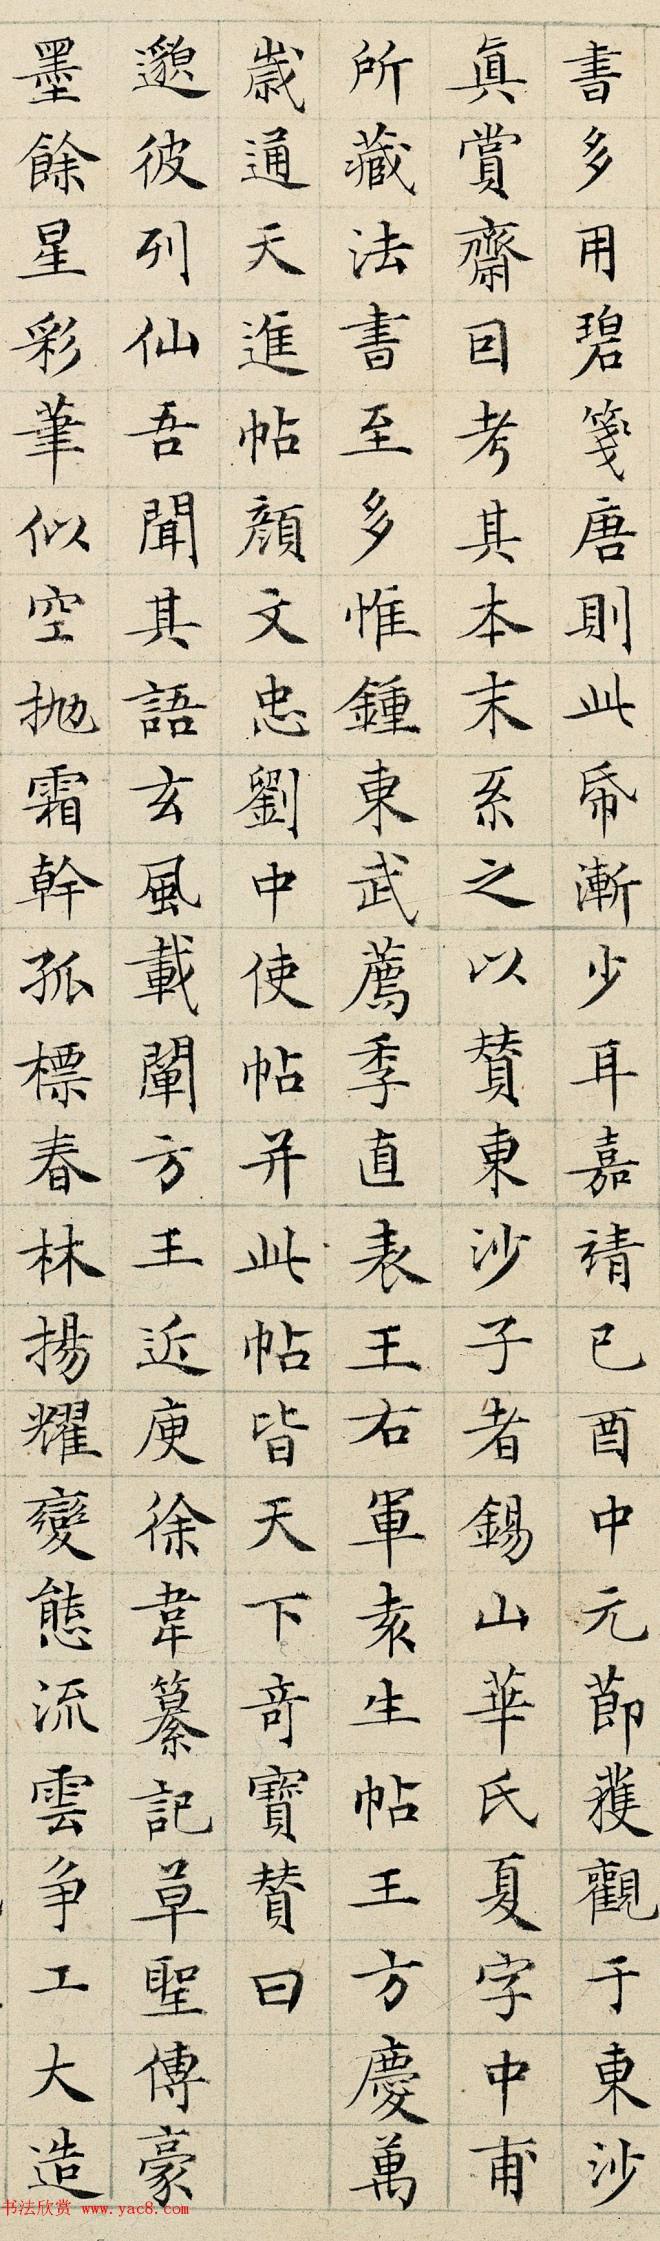 書多用碧箋唐則此帋漸少耳嘉靖己酉中元節獲觀于東沙
真賞齋因考其本末系之以贊東沙子者錫山華氏夏字中甫
所藏法書至多惟鍾東武薦季直表王右軍袁生帖王方慶萬
歲通天進帖顏文忠劉中使帖并此帖皆天下奇寶贊曰
邈彼列仙吾聞其語玄風載闡方王近庾徐韋纂記草聖傳豪
墨餘星彩筆似空拋霜幹孤標春林揚耀變態流雲爭工大造
书法欣赏 www.yac8.com